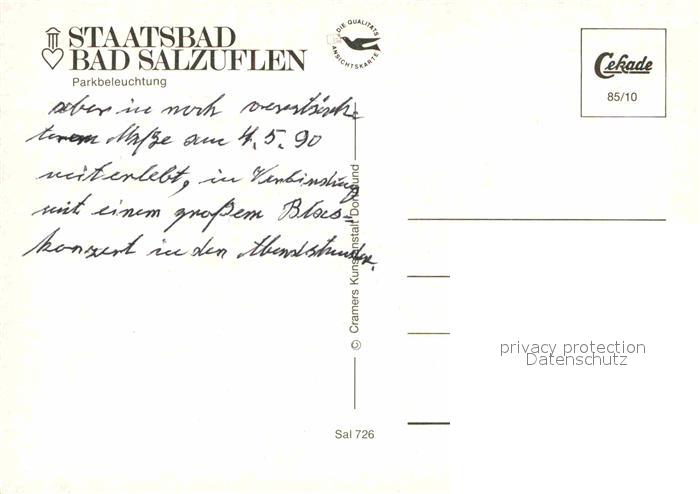 STAATSBAD
BAD SALZUFLEN
Parkbeleuchtung
DIE QUALITÄTS
ANSICHTSKARTE
Cekade
85/10
aber in noch
Maße am 4.5.90
miterlebt, in Verbindung
mit einem großem Blas=
konzert in den Abendstunden.
© Cramers Kunstanstalt Dortmund
Sal 726
privacy protection
Datenschutz